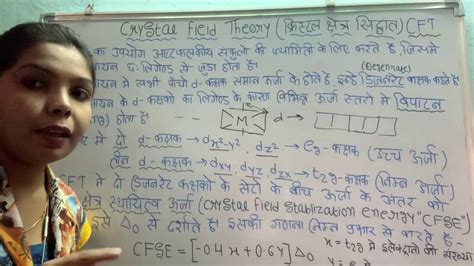 Crystal Field Theory (क्रिस्टल क्षेत्र सिद्धांत) CFT
का उपयोग अष्टफलकीय संकुलो की ज्यामिति के लिए करते है, जिसमे
छः लिगेण्ड से जुडा होता है।
(Degenerate)
मे सभी पाँचो d-कक्षक समान ऊर्जा के होते है, इन्हे डिजनरेट कक्षक कहते है।
के d-कक्षको का लिगेण्ड के कारण विभिन्न ऊर्जा स्तरो मे विपाटन
होता है।
M
d
मे दो d-कक्षक → dx²-y², dz² → eg-कक्षक (उच्च ऊर्जा)
तीन d-कक्षक → dxy, dyz, dzx → t2g-कक्षक (निम्न ऊर्जा)
CFT मे दो डिजनरेट कक्षको के सेटो के बीच ऊर्जा के अंतर को
क्षेत्र स्थायित्व ऊर्जा (Crystal field Stablization energy "CFSE")
इसे Δ₀ से दर्शाते है। इसकी गणना निम्न प्रकार से करते है-
CFSE = [-0.4x + 0.6y] Δ₀
x = t2g मे इलेक्ट्रानो की संख्या